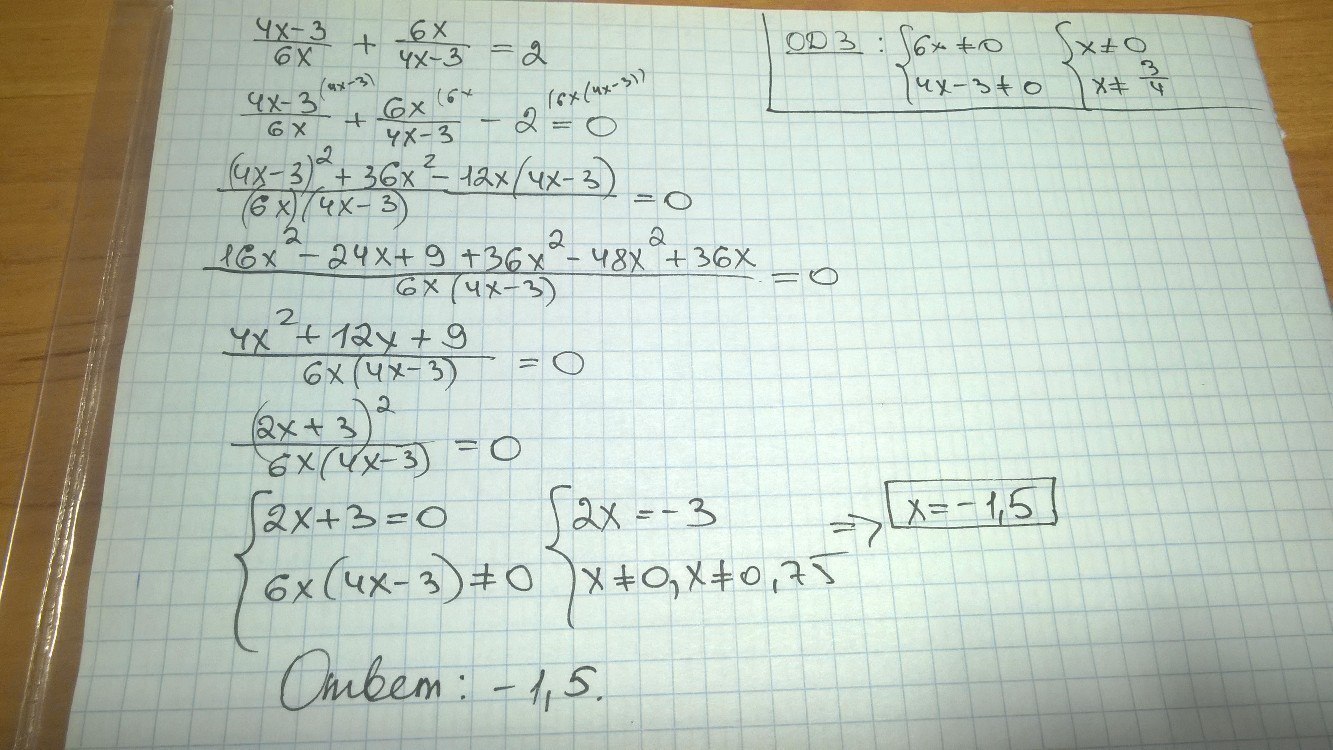 (4x-3)/(6x) + (6x)/(4x-3) = 2
ОДЗ : { 6x ≠ 0 { x ≠ 0
4x-3 ≠ 0 x ≠ 3/4
(4x-3)/(6x) ^(4x-3) + (6x)/(4x-3) ^(6x - 2 ^(6x(4x-3)) = 0
((4x-3)² + 36x² - 12x(4x-3))/((6x)(4x-3)) = 0
(16x² - 24x + 9 + 36x² - 48x² + 36x)/(6x(4x-3)) = 0
(4x² + 12x + 9)/(6x(4x-3)) = 0
(2x+3)²/(6x(4x-3)) = 0
{ 2x+3 = 0 { 2x = -3 => x = -1,5
6x(4x-3) ≠ 0 x ≠ 0, x ≠ 0,75
Ответ: -1,5.